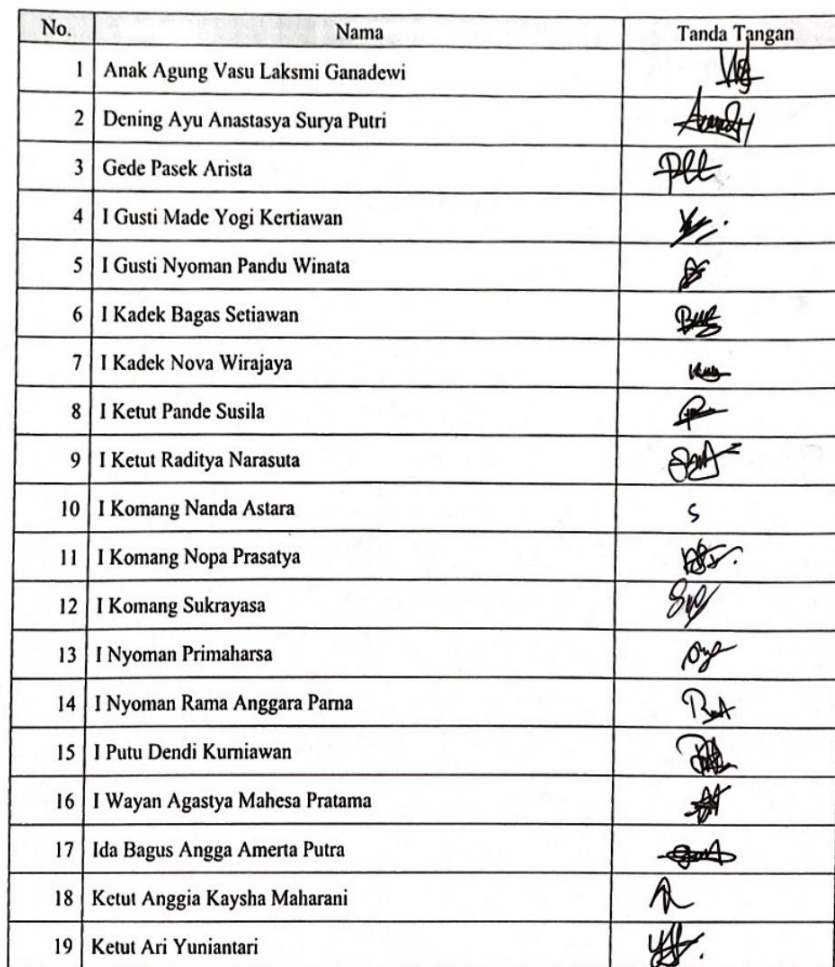 No. Nama Tanda Tangan
1 Anak Agung Vasu Laksmi Ganadewi
2 Dening Ayu Anastasya Surya Putri
3 Gede Pasek Arista
4 I Gusti Made Yogi Kertiawan
5 I Gusti Nyoman Pandu Winata
6 I Kadek Bagas Setiawan
7 I Kadek Nova Wirajaya
8 I Ketut Pande Susila
9 I Ketut Raditya Narasuta
10 I Komang Nanda Astara
11 I Komang Nopa Prasatya
12 I Komang Sukrayasa
13 I Nyoman Primaharsa
14 I Nyoman Rama Anggara Parna
15 I Putu Dendi Kurniawan
16 I Wayan Agastya Mahesa Pratama
17 Ida Bagus Angga Amerta Putra
18 Ketut Anggia Kaysha Maharani
19 Ketut Ari Yuniantari